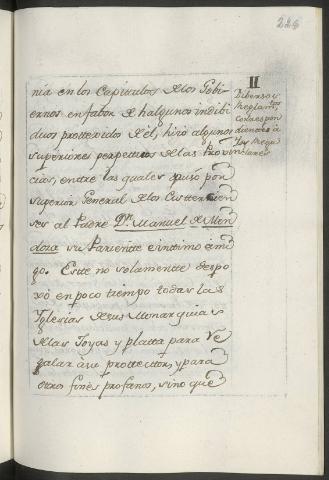 226
nía en los Capitulos de los Gobi-
ernos en fabor de halgunos indibi-
duos prottexidos de él, hizo algunos
superiores perpetuos de las Provin-
cias, entre las quales puso por
Superior General de los Cisttercien
ses al Padre Dn. Manuel de Men-
doza su Pariente è inttimo ami-
go. Este no solamentte despo-
xó en poco tiempo todas las
Iglesias de sus Monarquias
de las Joyas y platta para Re-
galar à su prottector, y para
otros fines profanos, sino que
II
Diberso s.
Reglam.tos
Correspon
dientes à